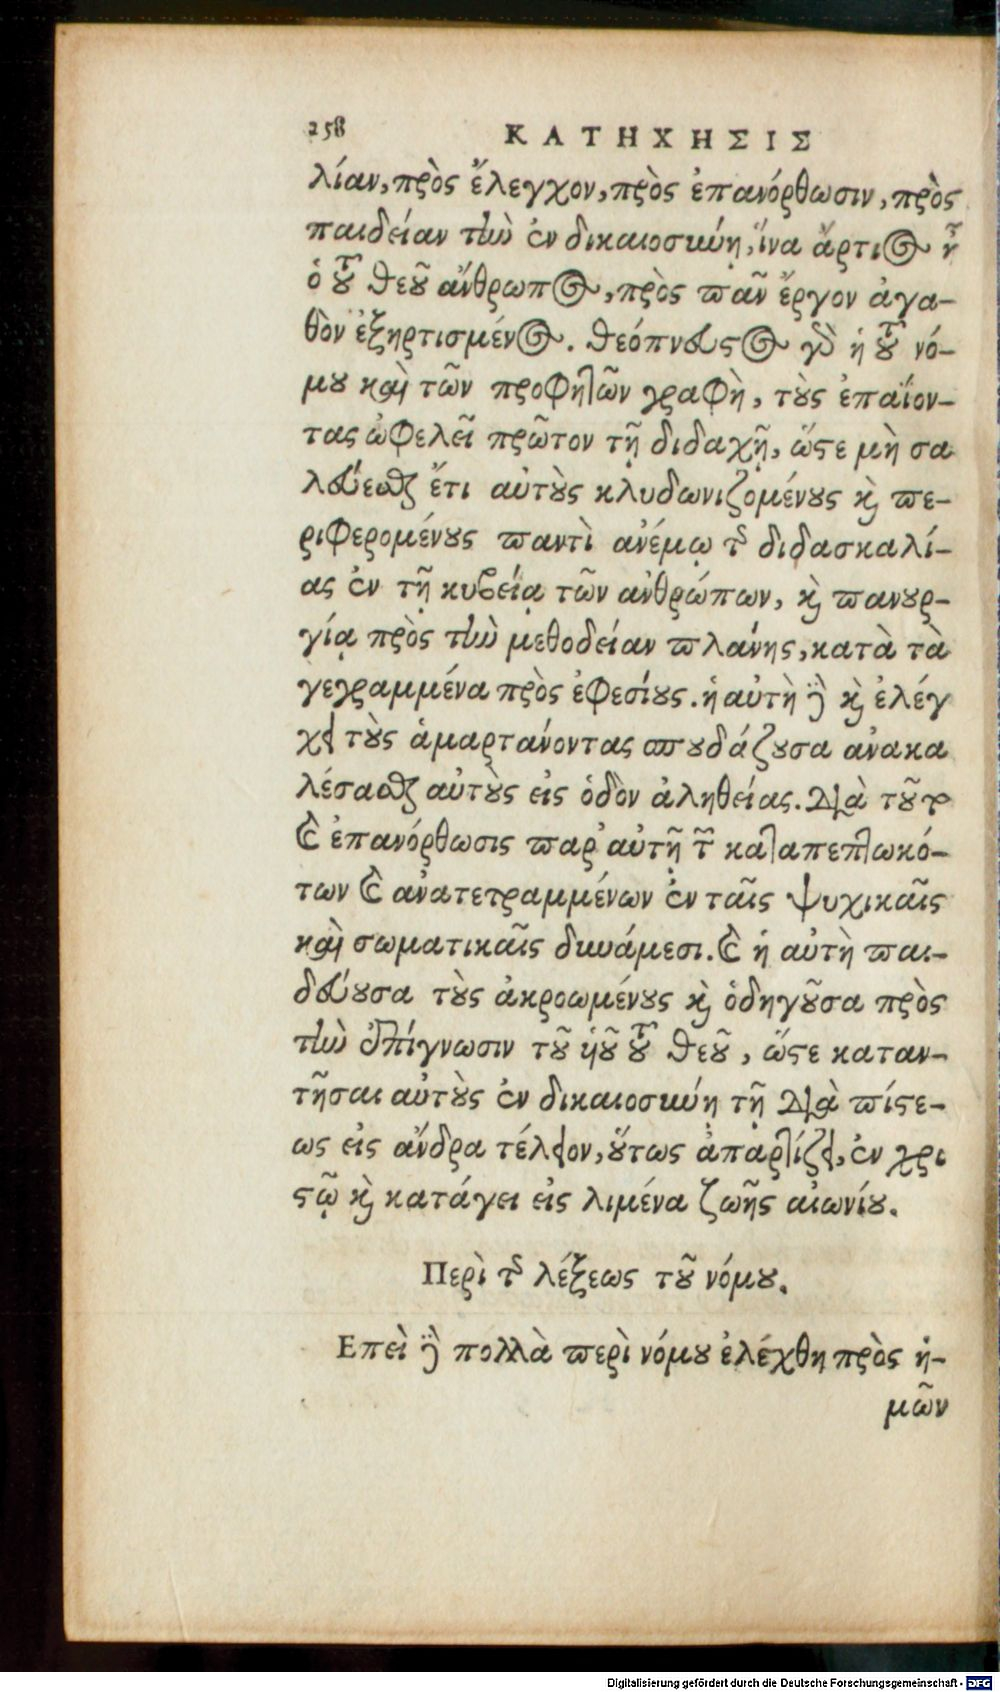 258 ΚΑΤΗΧΗΣΙΣ
λίαν, πρὸς ἔλεγχον, πρὸς ἐπανόρθωσιν, πρὸς
παιδείαν τὴν ἐν δικαιοσύνῃ, ἵνα ἄρτιος ᾖ
ὁ τοῦ θεοῦ ἄνθρωπος, πρὸς πᾶν ἔργον ἀγα-
θὸν ἐξηρτισμένος. θεόπνευστος γὰρ ἡ τοῦ νό-
μου καὶ τῶν προφητῶν γραφὴ, τοὺς ἐπαΐον-
τας ὠφελεῖ πρῶτον τῇ διδαχῇ, ὥστε μὴ σα
λεύεσθαι ἔτι αὐτοὺς κλυδωνιζομένους καὶ πε-
ριφερομένους παντὶ ἀνέμῳ τῆς διδασκαλί-
ας ἐν τῇ κυβείᾳ τῶν ἀνθρώπων, καὶ πανουρ-
γίᾳ πρὸς τὴν μεθοδείαν πλάνης, κατὰ τὰ
γεγραμμένα πρὸς ἐφεσίους. ἡ αὐτὴ δὲ καὶ ἐλέγ
χει τοὺς ἁμαρτάνοντας σπουδάζουσα ἀνακα
λέσασθαι αὐτοὺς εἰς ὁδὸν ἀληθείας. διὰ τοῦτο
καὶ ἐπανόρθωσις παρ' αὐτῇ τῶν καταπεπτωκό-
των καὶ ἀνατετραμμένων ἐν ταῖς ψυχικαῖς
καὶ σωματικαῖς δυνάμεσι. καὶ ἡ αὐτὴ παι-
δεύουσα τοὺς ἀκροωμένους καὶ ὁδηγοῦσα πρὸς
τὴν ἐπίγνωσιν τοῦ ὑιοῦ τοῦ θεοῦ, ὥστε καταν-
τῆσαι αὐτοὺς ἐν δικαιοσύνῃ τῇ διὰ πίστε-
ως εἰς ἄνδρα τέλειον, οὕτως ἀπαρτίζει, ἐν χρι
στῷ καὶ κατάγει εἰς λιμένα ζωῆς αἰωνίου.
Περὶ τῆς λέξεως τοῦ νόμου.
Επεὶ δὲ πολλὰ περὶ νόμου ἐλέχθη πρὸς ἡ-
μῶν
Digitalisierung gefördert durch die Deutsche Forschungsgemeinschaft - DFG